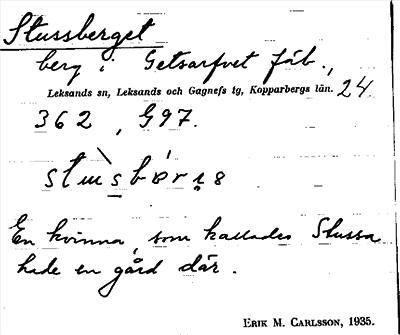 Stussberget
berg i Getsarfvet fäb.,
Leksands sn, Leksands och Gagnefs tg, Kopparbergs län. 24
362, G97.
En kvinna, som kallades Stussa
hade en gård där.
ERIK M. CARLSSON, 1935.